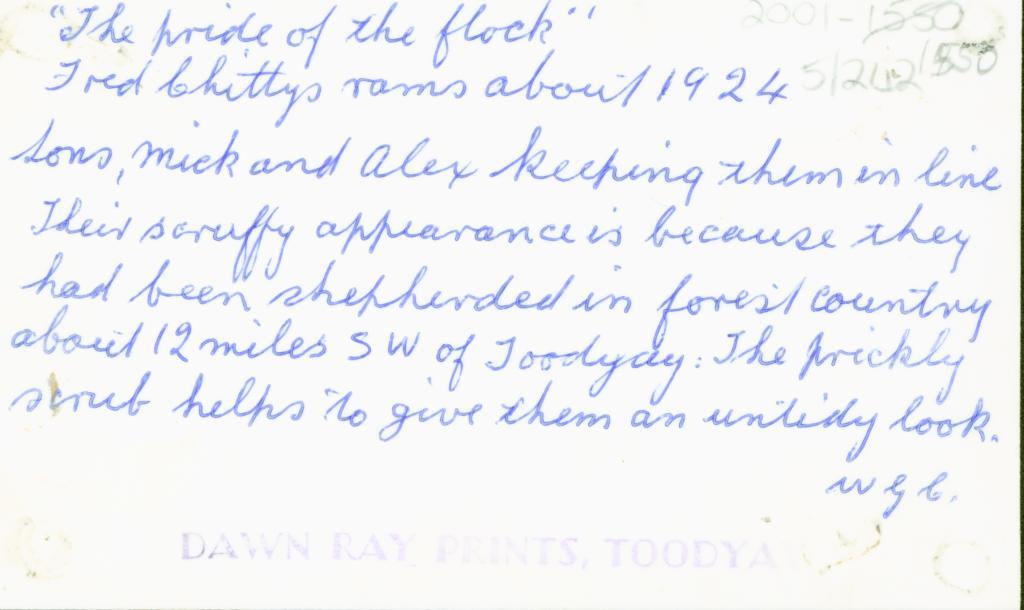 "The pride of the flock"
2001-1550
Fred Chittys rams about 1924
Sons, Mick and Alex keeping them in line
Their scruffy appearance is because they
had been shepherded in forest country
about 12 miles SW of Toodyay: The prickly
scrub helps to give them an untidy look.
W G C.
DAWN RAY PRINTS, TOODYAY